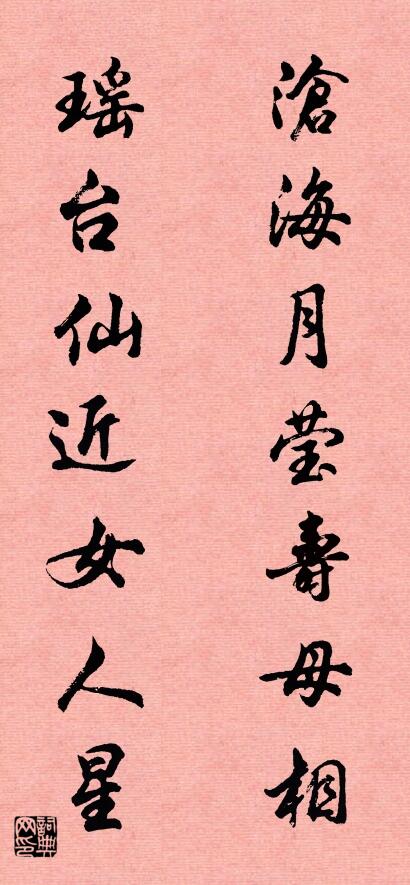 滄海月莹壽母相
瑶台仙近女人星
詞典网印